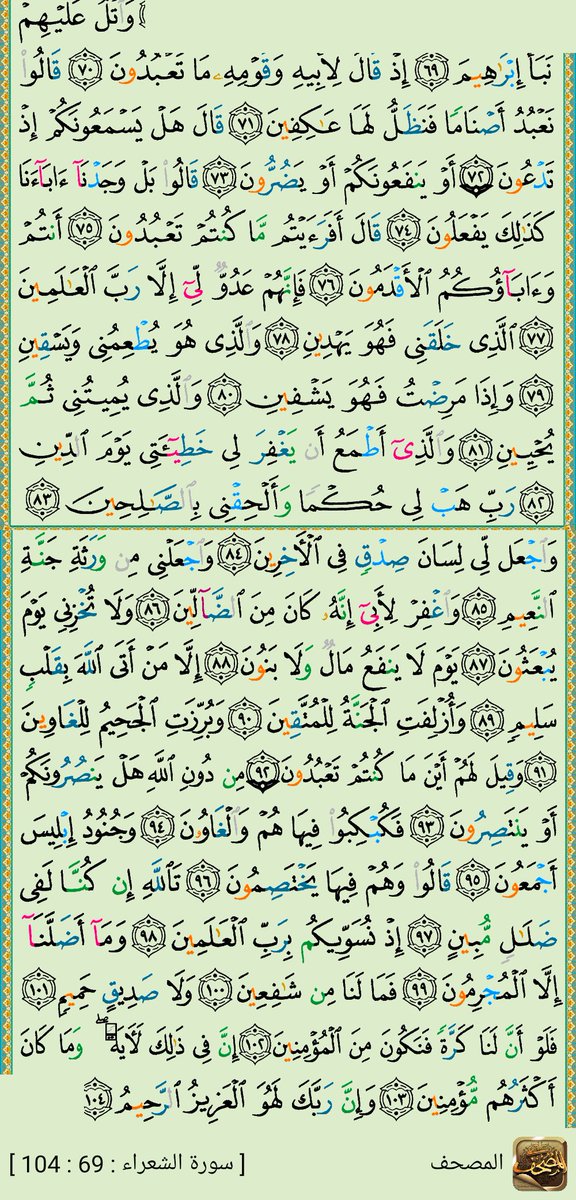 ﴿وَٱتْلُ عَلَيْهِمْ
نَبَأَ إِبْرَٰهِيمَ ۝٦٩ إِذْ قَالَ لِأَبِيهِ وَقَوْمِهِۦ مَا تَعْبُدُونَ ۝٧٠ قَالُوا۟
نَعْبُدُ أَصْنَامًا فَنَظَلُّ لَهَا عَـٰكِفِينَ ۝٧١ قَالَ هَلْ يَسْمَعُونَكُمْ إِذْ
تَدْعُونَ ۝٧٢ أَوْ يَنفَعُونَكُمْ أَوْ يَضُرُّونَ ۝٧٣ قَالُوا۟ بَلْ وَجَدْنَآ ءَابَآءَنَا
كَذَٰلِكَ يَفْعَلُونَ ۝٧٤ قَالَ أَفَرَءَيْتُم مَّا كُنتُمْ تَعْبُدُونَ ۝٧٥ أَنتُمْ
وَءَابَآؤُكُمُ ٱلْأَقْدَمُونَ ۝٧٦ فَإِنَّهُمْ عَدُوٌّ لِّىٓ إِلَّا رَبَّ ٱلْعَـٰلَمِينَ
۝٧٧ ٱلَّذِى خَلَقَنِى فَهُوَ يَهْدِينِ ۝٧٨ وَٱلَّذِى هُوَ يُطْعِمُنِى وَيَسْقِينِ
۝٧٩ وَإِذَا مَرِضْتُ فَهُوَ يَشْفِينِ ۝٨٠ وَٱلَّذِى يُمِيتُنِى ثُمَّ
يُحْيِينِ ۝٨١ وَٱلَّذِىٓ أَطْمَعُ أَن يَغْفِرَ لِى خَطِيٓـَٔتِى يَوْمَ ٱلدِّينِ
۝٨٢ رَبِّ هَبْ لِى حُكْمًا وَأَلْحِقْنِى بِٱلصَّـٰلِحِينَ ۝٨٣
وَٱجْعَل لِّى لِسَانَ صِدْقٍ فِى ٱلْـَٔاخِرِينَ ۝٨٤ وَٱجْعَلْنِى مِن وَرَثَةِ جَنَّةِ
ٱلنَّعِيمِ ۝٨٥ وَٱغْفِرْ لِأَبِىٓ إِنَّهُۥ كَانَ مِنَ ٱلضَّآلِّينَ ۝٨٦ وَلَا تُخْزِنِى يَوْمَ
يُبْعَثُونَ ۝٨٧ يَوْمَ لَا يَنفَعُ مَالٌ وَلَا بَنُونَ ۝٨٨ إِلَّا مَنْ أَتَى ٱللَّهَ بِقَلْبٍ
سَلِيمٍ ۝٨٩ وَأُزْلِفَتِ ٱلْجَنَّةُ لِلْمُتَّقِينَ ۝٩٠ وَبُرِّزَتِ ٱلْجَحِيمُ لِلْغَاوِينَ
۝٩١ وَقِيلَ لَهُمْ أَيْنَ مَا كُنتُمْ تَعْبُدُونَ ۝٩٢ مِن دُونِ ٱللَّهِ هَلْ يَنصُرُونَكُمْ
أَوْ يَنتَصِرُونَ ۝٩٣ فَكُبْكِبُوا۟ فِيهَا هُمْ وَٱلْغَاوُۥنَ ۝٩٤ وَجُنُودُ إِبْلِيسَ
أَجْمَعُونَ ۝٩٥ قَالُوا۟ وَهُمْ فِيهَا يَخْتَصِمُونَ ۝٩٦ تَٱللَّهِ إِن كُنَّا لَفِى
ضَلَـٰلٍ مُّبِينٍ ۝٩٧ إِذْ نُسَوِّيكُم بِرَبِّ ٱلْعَـٰلَمِينَ ۝٩٨ وَمَآ أَضَلَّنَآ
إِلَّا ٱلْمُجْرِمُونَ ۝٩٩ فَمَا لَنَا مِن شَـٰفِعِينَ ۝١٠٠ وَلَا صَدِيقٍ حَمِيمٍ ۝١٠١
فَلَوْ أَنَّ لَنَا كَرَّةً فَنَكُونَ مِنَ ٱلْمُؤْمِنِينَ ۝١٠٢ إِنَّ فِى ذَٰلِكَ لَـَٔايَةً ۖ وَمَا كَانَ
أَكْثَرُهُم مُّؤْمِنِينَ ۝١٠٣ وَإِنَّ رَبَّكَ لَهُوَ ٱلْعَزِيزُ ٱلرَّحِيمُ ۝١٠٤
المصحف [ سورة الشعراء : 69 : 104 ]